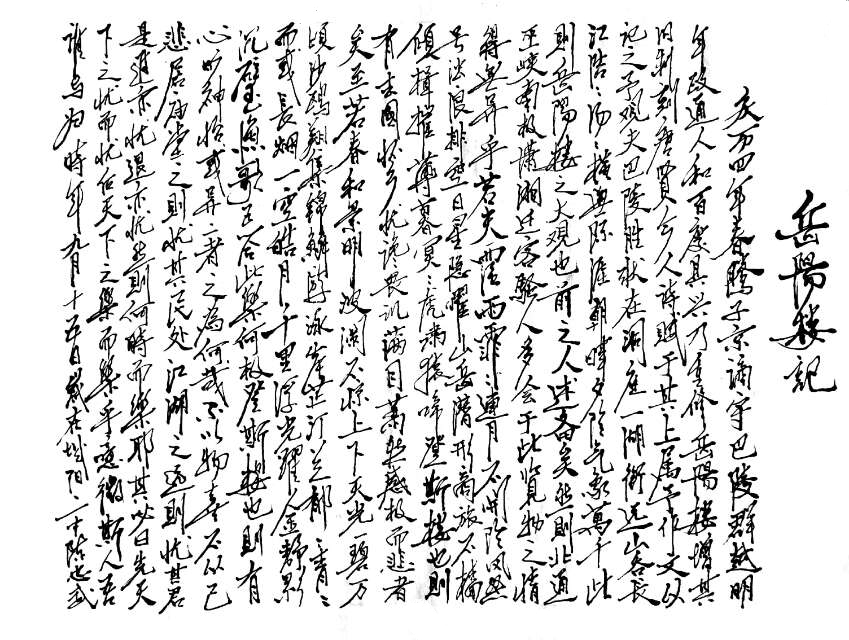 岳陽楼記
庆历四年春滕子京谪守巴陵郡越明
年政通人和百废具兴乃重修岳陽楼增其
旧制刻唐賢今人诗賦于其上属予作文以
记之予观夫巴陵胜状在洞庭一湖衔远山吞长
江浩浩汤汤横無际涯朝暉夕阴气象萬千此
則岳陽楼之大观也前之人述备矣然則北通
巫峡南极潇湘迁客騷人多会于此览物之情
得無异乎若夫霪雨霏霏連月不开阴风怒
号浊浪排空日星隐耀山岳潜形商旅不行樯
傾楫摧薄暮冥冥虎啸猿啼登斯楼也則
有去国怀乡忧谗畏讥滿目蕭然感极而悲者
矣至若春和景明波瀾不惊上下天光一碧万
顷沙鸥翔集锦鳞游泳岸芷汀兰郁郁青青
而或长烟一空皓月千里浮光躍金静影
沉璧渔歌互答此樂何极登斯楼也則有
心旷神怡或异二者之為何哉不以物喜不以己
悲居庙堂之則忧其民处江湖之远則忧其君
是進亦忧退亦忧然則何時而樂耶其必曰先天
下之忧而忧后天下之樂而樂乎噫微斯人吾
谁与归時年九月十五日歲在